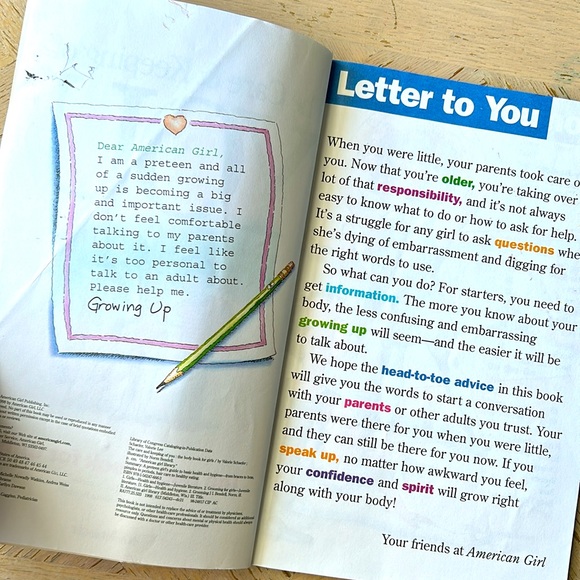 Dear American Girl,
I am a preteen and all
of a sudden growing
up is becoming a big
and important issue. I
don't feel comfortable
talking to my parents
about it. I feel like
it's too personal to
talk to an adult about.
Please help me.
Growing Up
Library of Congress Cataloging-in-Publication Data
This book is not intended to replace the advice of or treatment by physicians,
psychologists, or other health-care professionals. It should be considered an additional
resource only. Questions and concerns about mental or physical health should always
be discussed with a doctor or other health-care provider.
Letter to You
When you were little, your parents took care
you. Now that you're older, you're taking over
lot of that responsibility, and it's not always
easy to know what to do or how to ask for help.
It's a struggle for any girl to ask questions
she's dying of embarrassment and digging for
the right words to use.
So what can you do? For starters, you need to
get information. The more you know about your
body, the less confusing and embarrassing
growing up will seem—and the easier it will be
to talk about.
We hope the head-to-toe advice in this book
will give you the words to start a conversation
with your parents or other adults you trust. Your
parents were there for you when you were little,
and they can still be there for you now. If you
speak up, no matter how awkward you feel,
your confidence and spirit will grow right
along with your body!
Your friends at American Girl